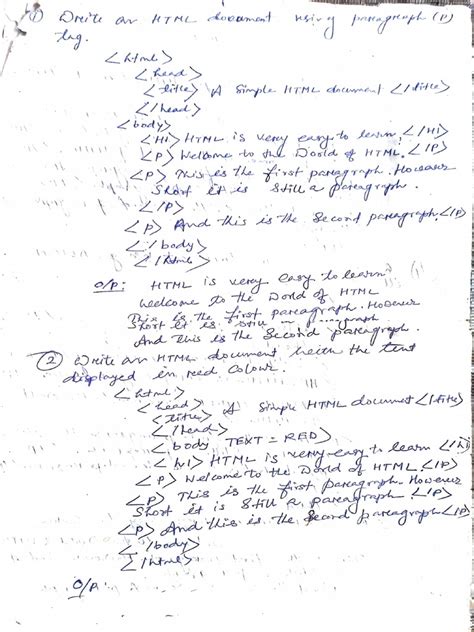 ① Write an HTML document using paragraph (P)
tag.
<html>
<head>
<title> A Simple HTML document </title>
</head>
<body>
<H1> HTML is very easy to learn. </H1>
<P> Welcome to the World of HTML. </P>
<P> This is the first paragraph. However
Short it is Still a paragraph.
</P>
<P> And this is the Second paragraph. </P>
</body>
</html>
O/P: HTML is very easy to learn
Welcome to the World of HTML
This is the first paragraph. However
Short it is Still a paragraph
And this is the Second paragraph.
② Write an HTML document with the text
displayed in red Colour.
<html>
<head>
<title> A Simple HTML document </title>
</head>
<body TEXT = RED>
<h1> HTML is very easy to learn </h1>
<P> Welcome to the World of HTML </P>
<P> This is the first paragraph. However
Short it is Still a paragraph </P>
<P> And this is the Second paragraph </P>
</body>
</html>
O/P: